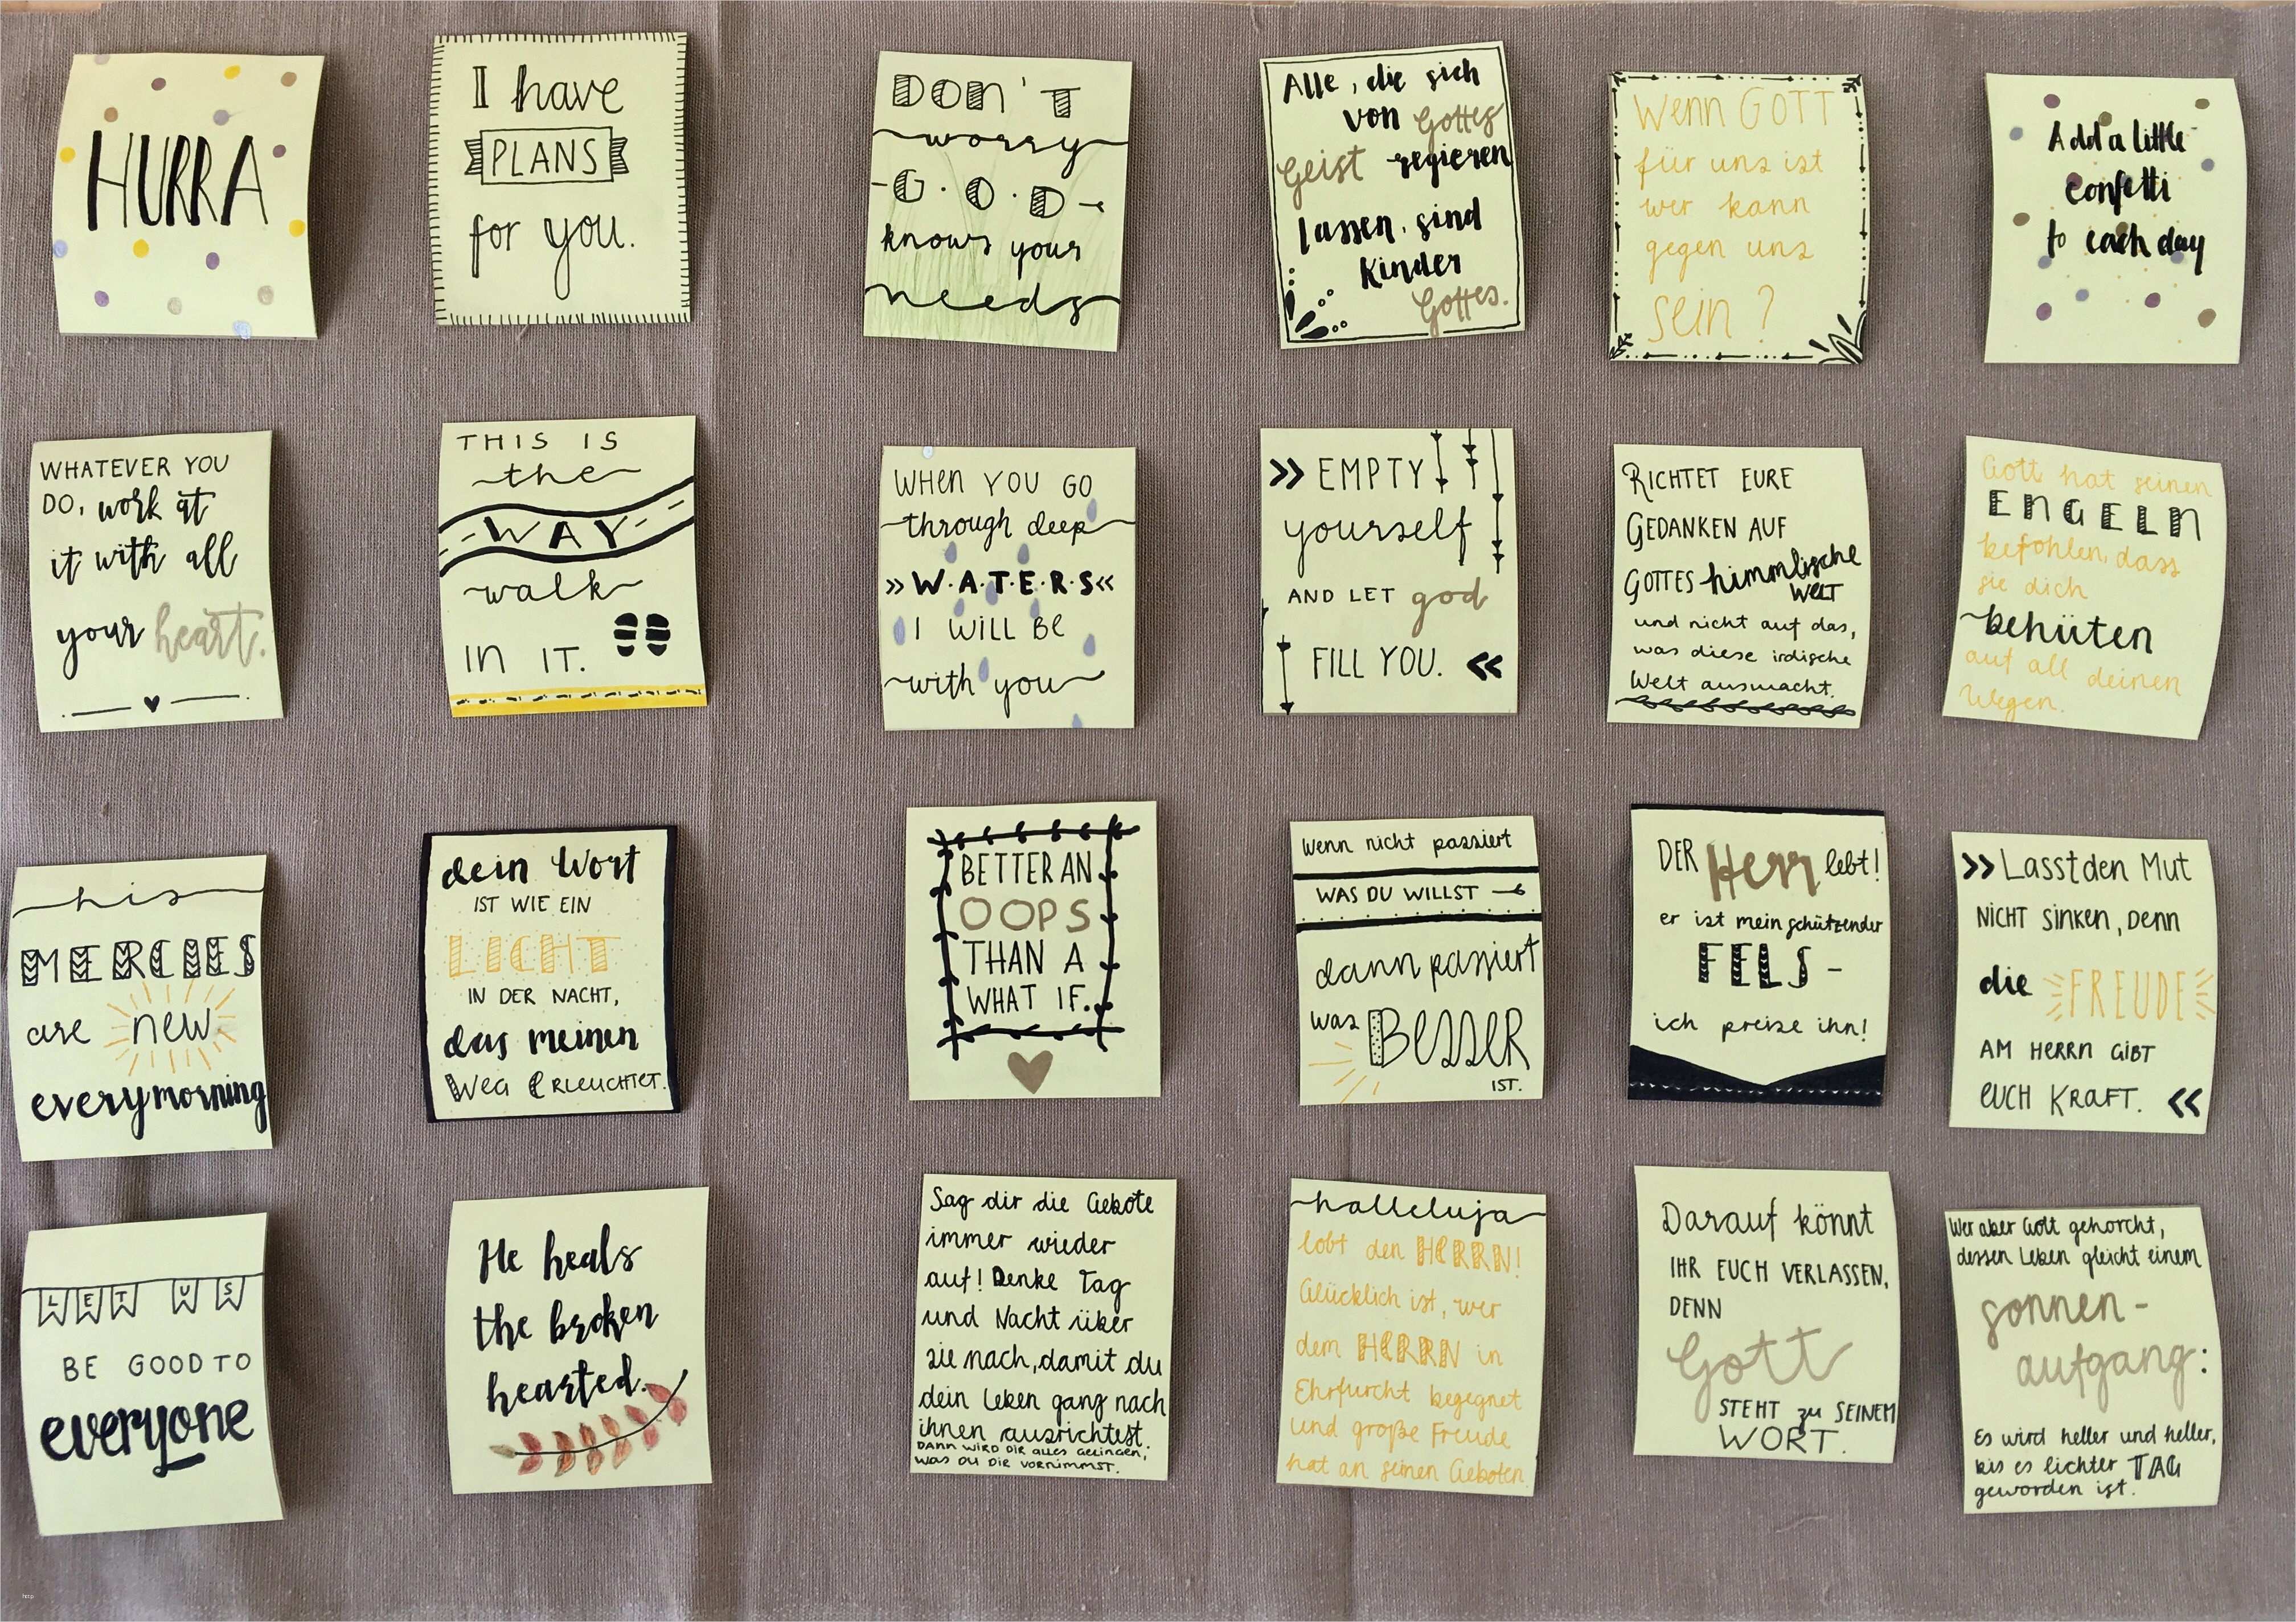 HURRA
I have
PLANS
for you.
DON'T
worry
G.O.D
knows your
needs
Alle, die sich
von Gottes
Geist regieren
lassen, sind
Kinder
Gottes.
Wenn GOTT
für uns ist
wer kann
gegen uns
sein?
Add a little
confetti
to each day
WHATEVER YOU
DO, work at
it with all
your heart.
THIS IS
the
WAY
walk
IN IT.
WHEN YOU GO
through deep
»W.A.T.E.R.S«
I WILL BE
with you
» EMPTY
yourself
AND LET god
FILL YOU. «
RICHTET EURE
GEDANKEN AUF
GOTTES himmlische
WELT
und nicht auf das,
was diese irdische
Welt ausmacht.
Gott hat seinen
ENGELN
befohlen, dass
sie dich
behüten
auf all deinen
Wegen.
his
MERCIES
are new
every morning
dein Wort
IST WIE EIN
LICHT
IN DER NACHT,
das meinen
WEG ERLEUCHTET.
BETTER AN
OOPS
THAN A
WHAT IF.
Wenn nicht passiert
WAS DU WILLST
dann passiert
was BESSER
IST.
DER Herr lebt!
er ist mein schützender
FELS -
ich preise ihn!
» Lasst den Mut
NICHT SINKEN, DENN
die FREUDE
AM HERRN GIBT
EUCH KRAFT. «
LET US
BE GOOD TO
everyone
He heals
the broken
hearted.
Sag dir die Gebote
immer wieder
auf! Denke Tag
und Nacht über
sie nach, damit du
dein Leben gang nach
ihnen ausrichtest.
DANN WIRD DIR ALLES GELINGEN,
WAS DU DIR VORNIMMST.
halleluja
lobt den HERRN!
Glücklich ist, wer
dem HERRN in
Ehrfurcht begegnet
und große Freude
hat an seinen Geboten.
Darauf könnt
IHR EUCH VERLASSEN,
DENN
Gott
STEHT zu SEINEM
WORT.
Wer aber Gott gehorcht,
dessen Leben gleicht einem
sonnen-
aufgang:
Es wird heller und heller,
bis es lichter TAG
geworden ist.